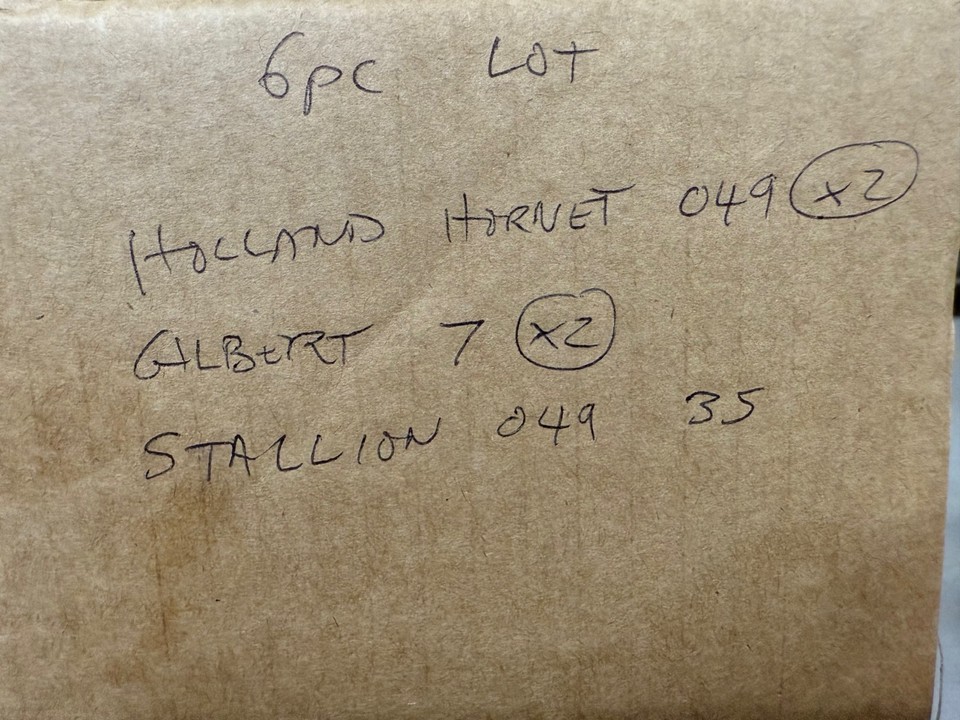 6pc LOT
HOLLAND HORNET 049 x2
GILBERT 7 x2
STALLION 049 35